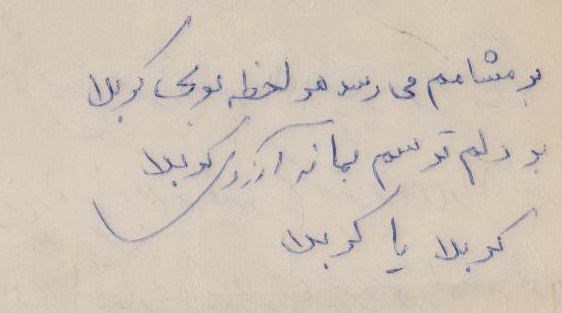 بر مشامم می رسد هر لحظه بوی کربلا
بر دلم ترسم بماند آرزوی کربلا
کربلا یا کربلا